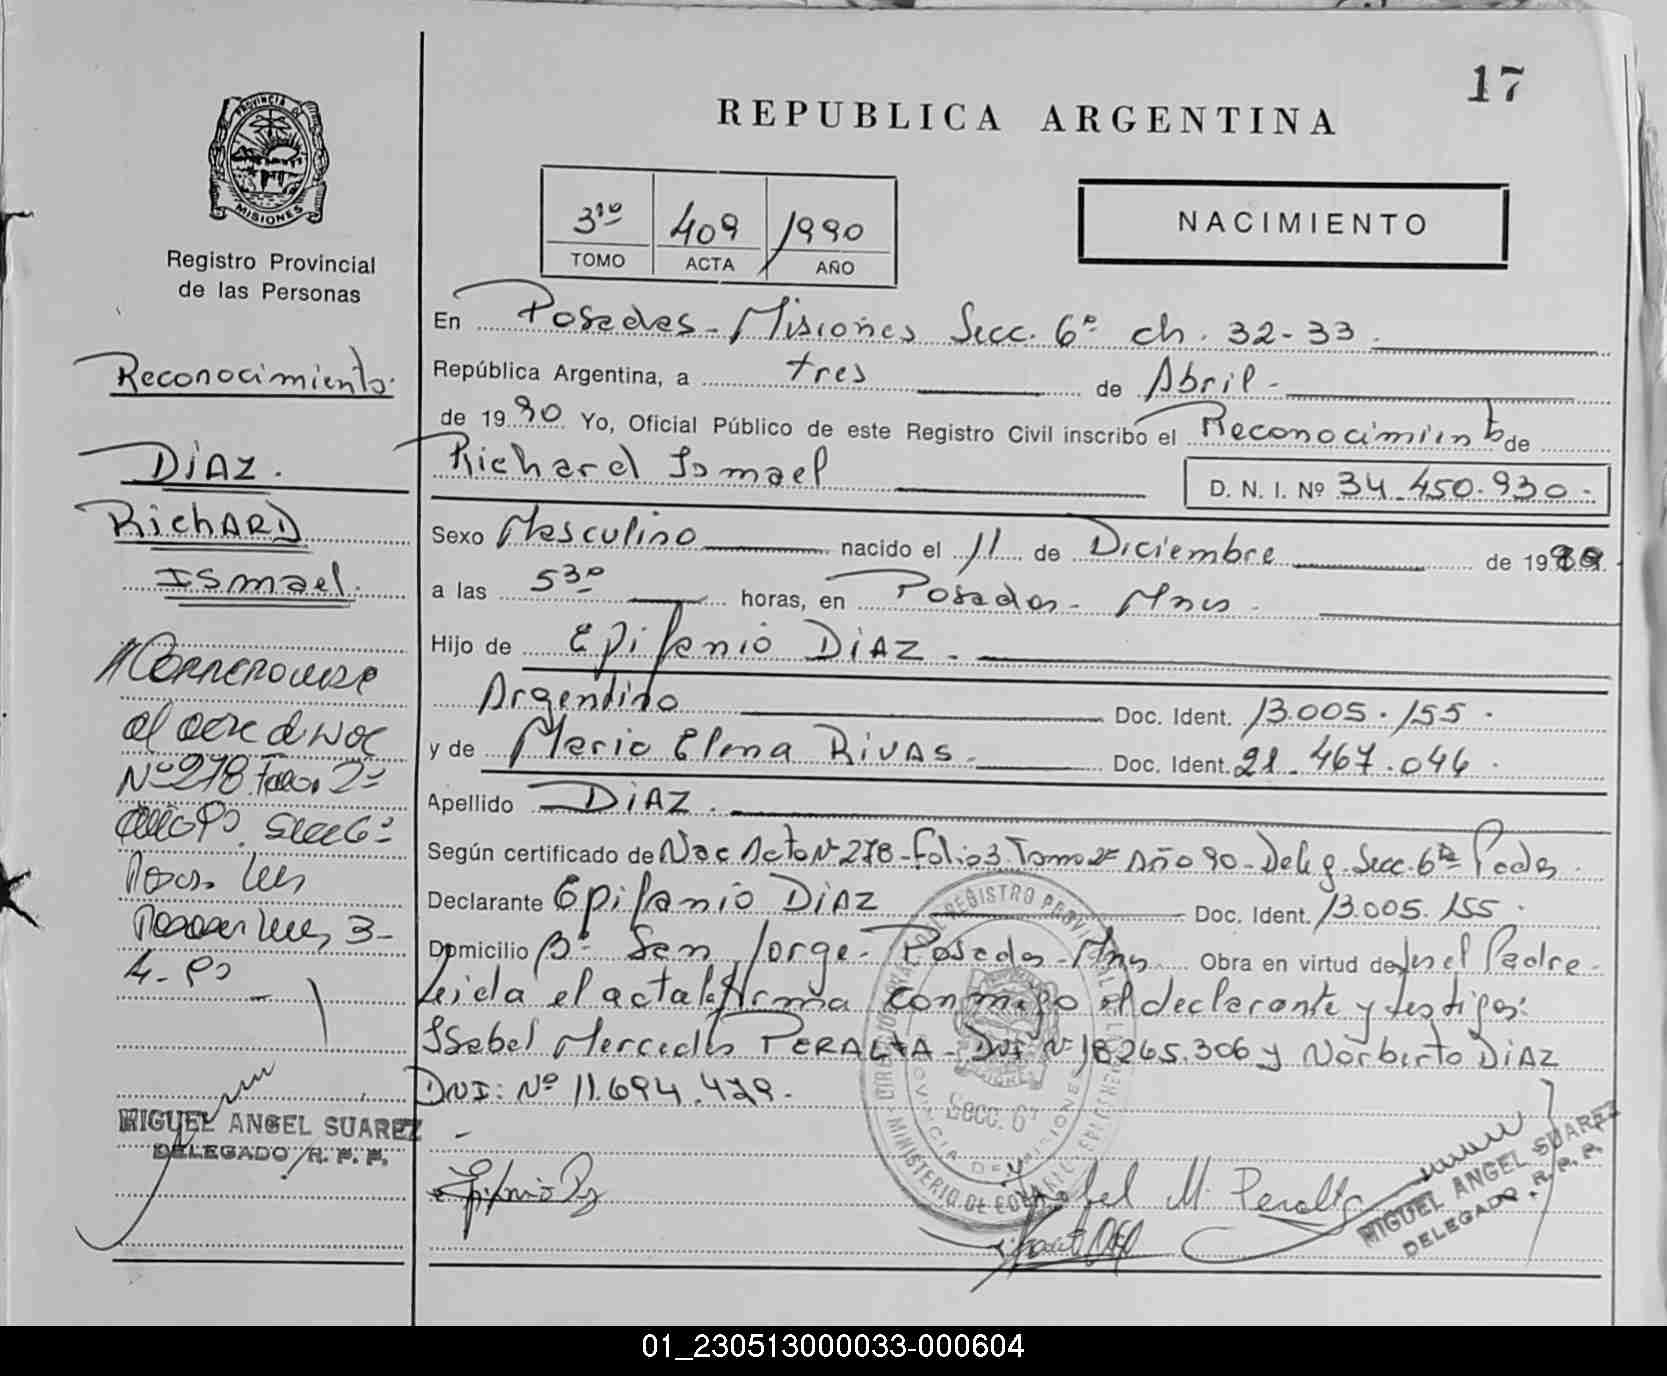 17
REPUBLICA ARGENTINA
PROVINCIA DE
MISIONES
Registro Provincial
de las Personas
3ro 409 1990
TOMO ACTA AÑO
NACIMIENTO
En Posadas - Misiones Secc. 6a ch. 32-33
República Argentina, a tres de Abril -
de 1990 Yo, Oficial Público de este Registro Civil inscribo el Reconocimiento de
Richard Ismael D. N. I. Nº 34.450.930 -
Sexo Masculino nacido el 11 de Diciembre de 1989
a las 530 horas, en Posadas - Mnes.
Hijo de Epifanio DIAZ.
Argentino Doc. Ident. 13.005.155.
y de Maria Elena RIVAS. Doc. Ident. 21.467.046.
Apellido DIAZ.
Según certificado de Nac Acto Nº 278 - Folio 3. Tomo 2º Año 90 - Deleg. Secc. 6ta Pdas.
Declarante Epifanio DIAZ Doc. Ident. 13.005.155.
Domicilio Bº San Jorge - Posadas - Mnes Obra en virtud de ser el Padre -
Leida el acta la firma conmigo el declarante y testigos:
Isabel Mercedes PERALTA - DNI Nº 18.265.306 y Norberto DIAZ
DNI: Nº 11.694.429.
Reconocimiento.
DIAZ.
RichARD
ISmael.
al acta de Nac
Nº 278 Tomo 2º
Secc 6ª
3-
MIGUEL ANGEL SUAREZ
DELEGADO R. P. P.
SECC. 6ª
Isabel M. Peralta
MIGUEL ANGEL SUAREZ
DELEGADO R. P. P.
01_230513000033-000604